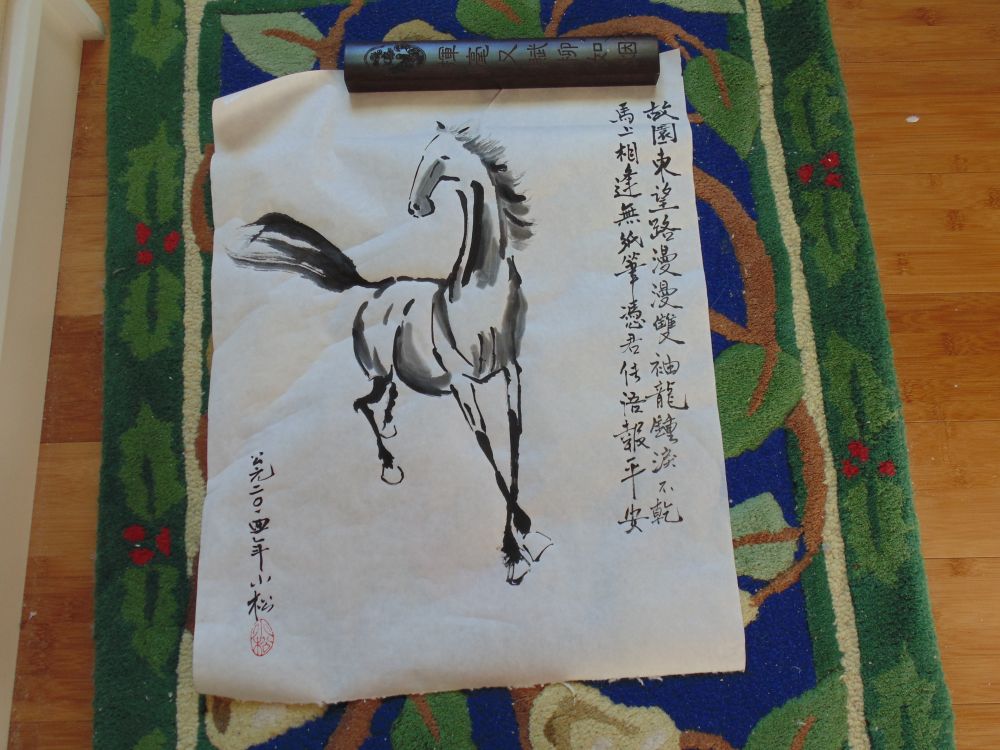 故園東望路漫漫雙袖龍鍾淚不乾
馬上相逢無紙筆憑君传语報平安
公元二〇一四年小松
小松